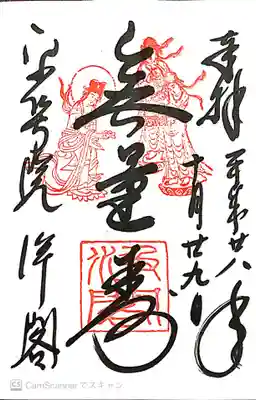 奉拝
平成廿八年
十月廿九日
無量寿
平等院
CS CamScannerでスキャン